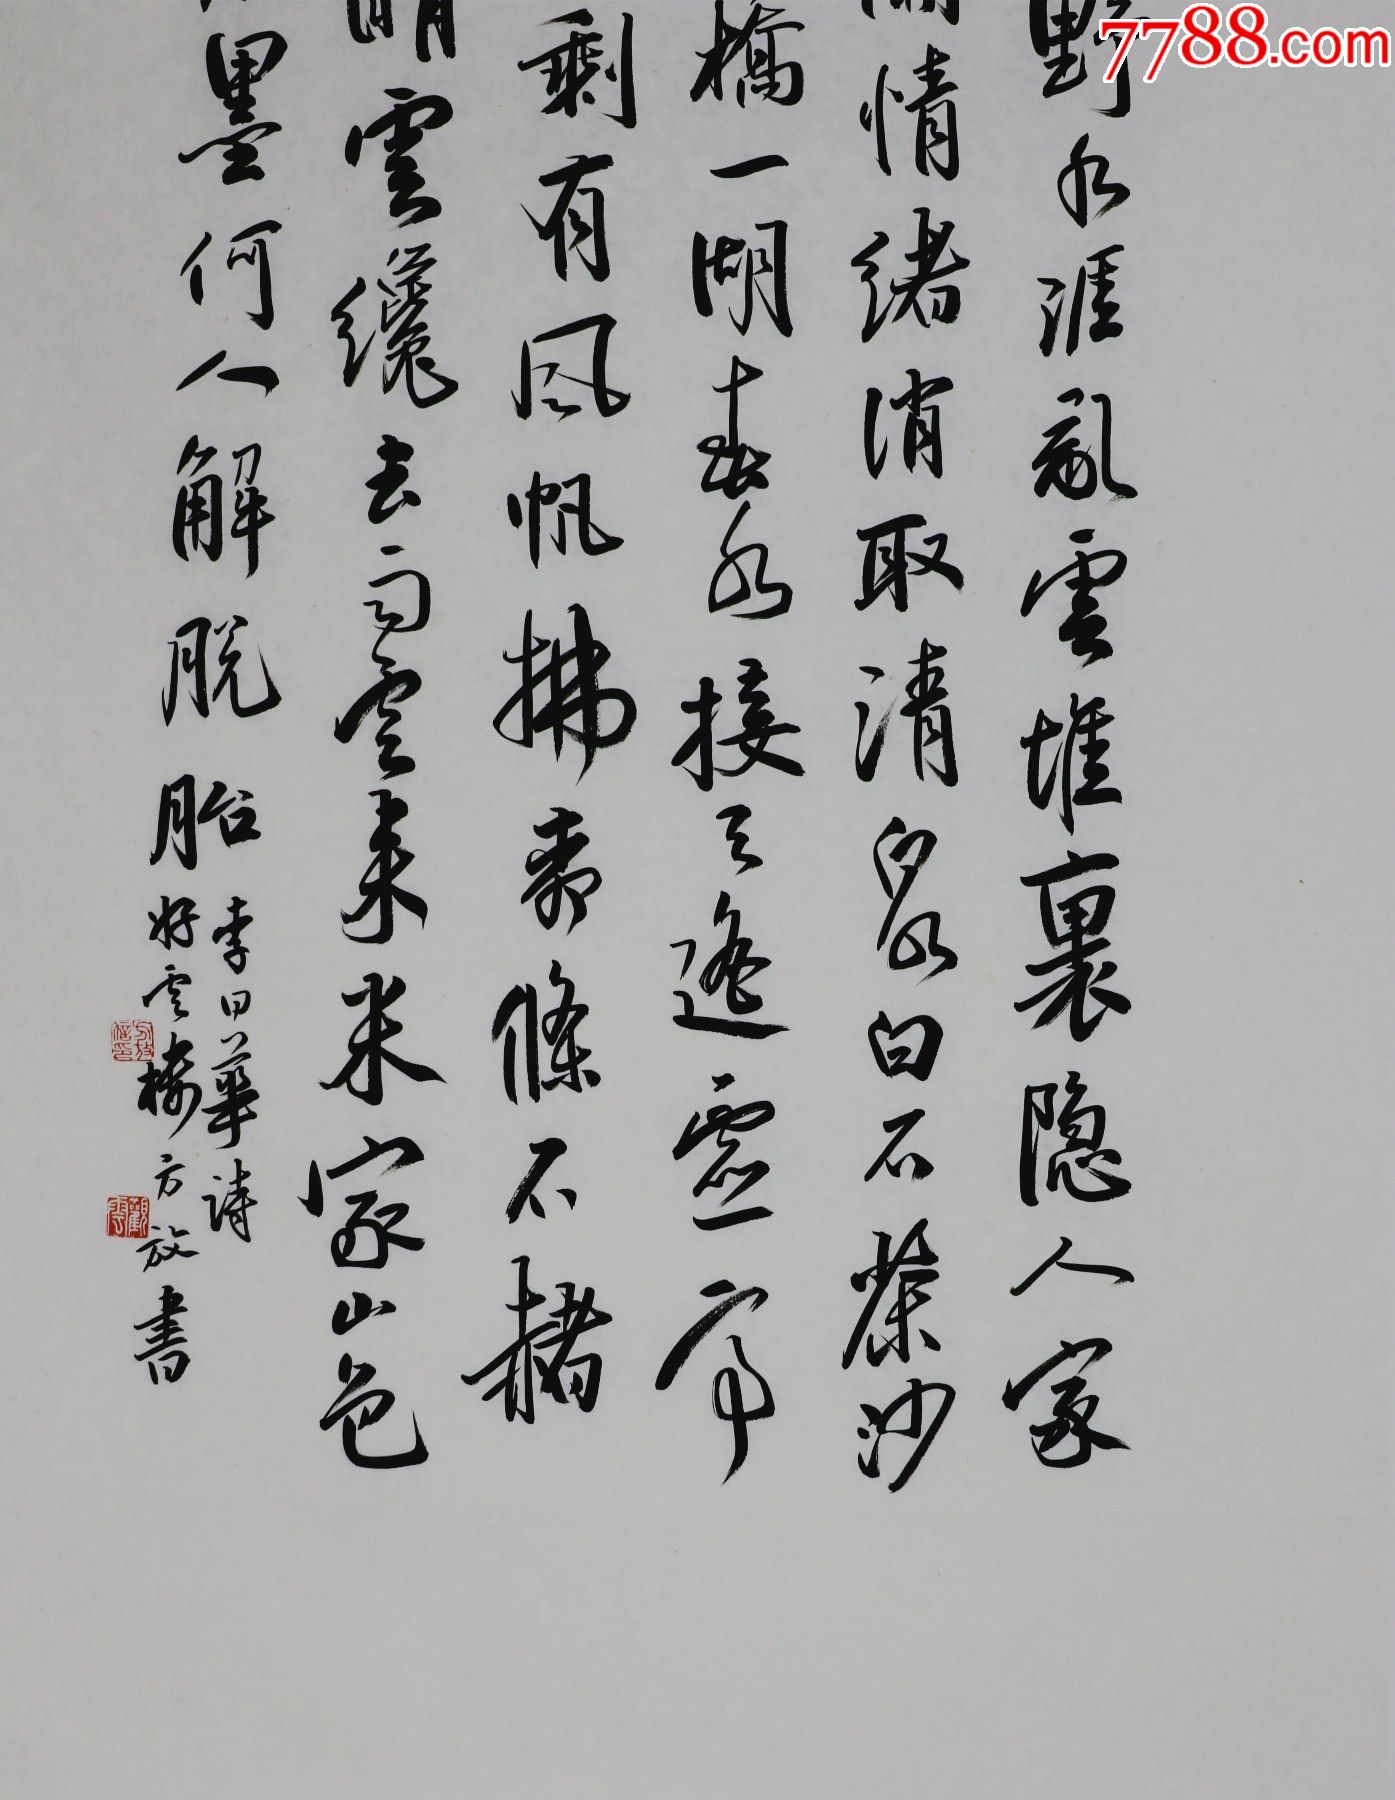 7788.com
野水涯亂雲堆裏隱人家
情緒消取清泉白石紫沙
橋一湖春水接天遙虛亭
剩有風帆拂素條不
晴雲纔去雨雲來米家山色
墨何人解脫胎
李日華詩
好雲樓方放書